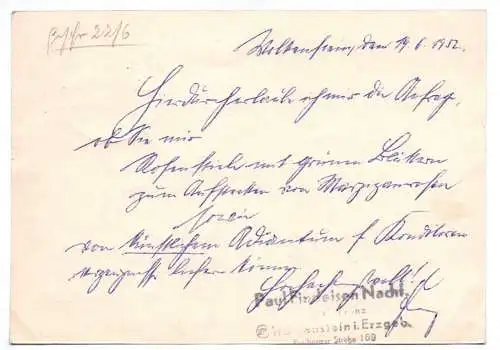 Beschr 22/6
Wolkenstein, den 19.6.1952.
Hierdurch erlaube ich mir die Anfrage,
ob Sie mir
Rosenstiele mit grünen Blättern
zum Aufstecken von Marzipanrosen
sowie
von künstlichem Adiantum f. Konditorei
erzeugnisse liefern können
Hochachtungsvoll!
Paul Findeisen Nachf.
Wolkenstein i. Erzgeb.
Straße 160